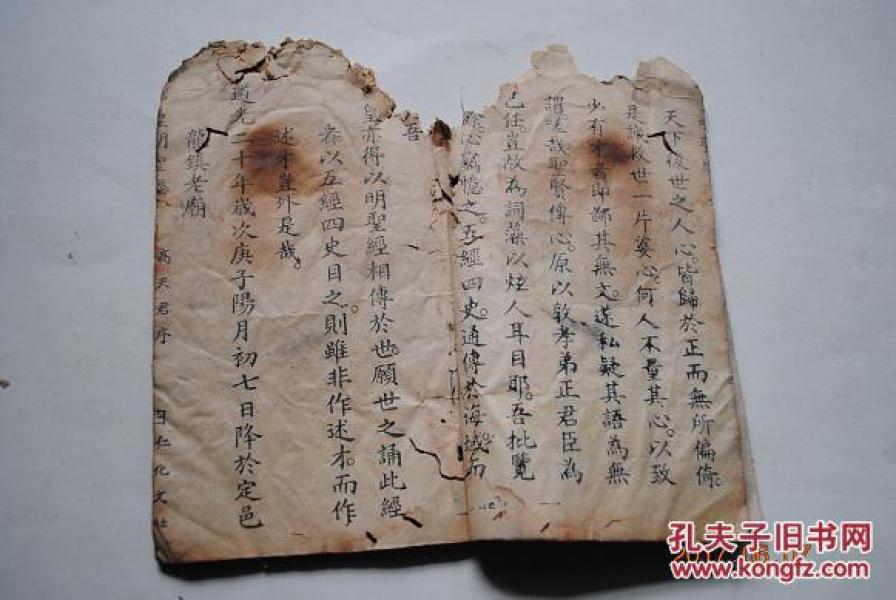 天下後世之人心。皆歸於正而無所偏倚。
是誠救世一片婆心。何人不量其心。以致
少有才者即鄙其無文。遂私疑其語為無
謂。嗟哉聖賢傳心。原以敦孝弟正君臣為
己任。豈故為詞藻以炫人耳目耶。吾批覽
餘。心竊憶之。五經四史。通傳於海域。而
吾
皇亦得以明聖經相傳於世。願世之誦此經
者。以五經四史目之。則雖非作述才。而作
述才豈外是哉。
道光二十年歲次庚子陽月初七日降於定邑
龍鎮老廟
明聖
高天君序
同仁化文社
孔夫子旧书网
www.kongfz.com